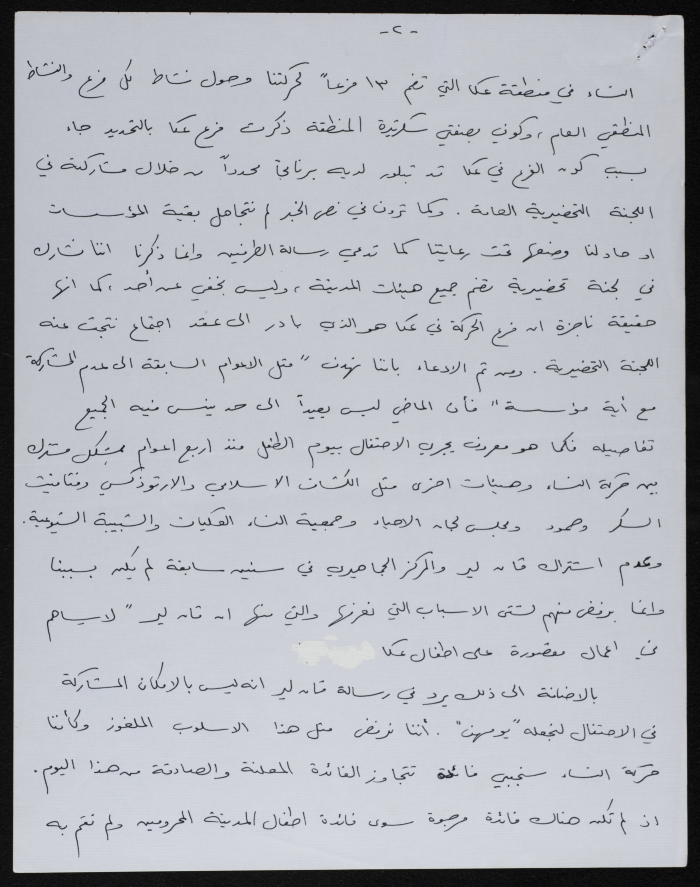 - ٢ -
النساء في منطقة عكا التي تضم ١٣ فرعاً لحركتنا وحول نشاط كل فرع والنشاط
المنطقي العام، وكوني بصفتي سكرتيرة المنطقة ذكرت فرع عكا بالتحديد جاء
بسبب كون الفرع في عكا قد تبلور لديه برنامجاً محدداً من خلال مشاركته في
اللجنة التحضيرية العامة. وكما ترون في نص الخبر لم نتجاهل بقية المؤسسات
او حاولنا وضعها تحت رعايتنا كما تدعي رسالة الطرفين وانما ذكرنا اننا نشارك
في لجنة تحضيرية تضم جميع هيئات المدينة، وليس بخفي عن أحد، كما انها
حقيقة ناجزة ان فرع الحركة في عكا هو الذي بادر الى عقد اجتماع نتجت عنه
اللجنة التحضيرية. ومن ثم الادعاء باننا نهدف "مثل الاعوام السابقة الى عدم المشاركة
مع أية مؤسسة" فأن الماضي ليس بعيداً الى حد ينسى فيه الجميع
تفاصيله فكما هو معروف يجري الاحتفال بيوم الطفل منذ اربع اعوام بشكل مشترك
بين حركة النساء وهيئات اخرى مثل الكشاف الاسلامي والارثوذكسي
السكر وحمود ومجلس لجان الاحياء وجمعية النساء العكيات والشبيبة الشيوعية.
وعدم اشتراك ڤان لير والمركز الجماهيري في سنين سابقة لم يكن بسببنا
وانما برفض منهم لشتى الاسباب التي نعرفها والتي منها ان ڤان لير "لا يساهم
في اعمال مقصورة على اطفال عكا
بالاضافة الى ذلك يرد في رسالة ڤان لير انه ليس بالامكان المشاركة
في الاحتفال لنجعله "يومهن". أننا نرفض مثل هذا الاسلوب الملغوز وكأننا
حركة النساء سنجني فائدة تتجاوز الفائدة المعلنة والصادقة من هذا اليوم.
اذ لم تكن هناك فائدة مرجوة سوى فائدة اطفال المدينة المحرومين ولم نقم به